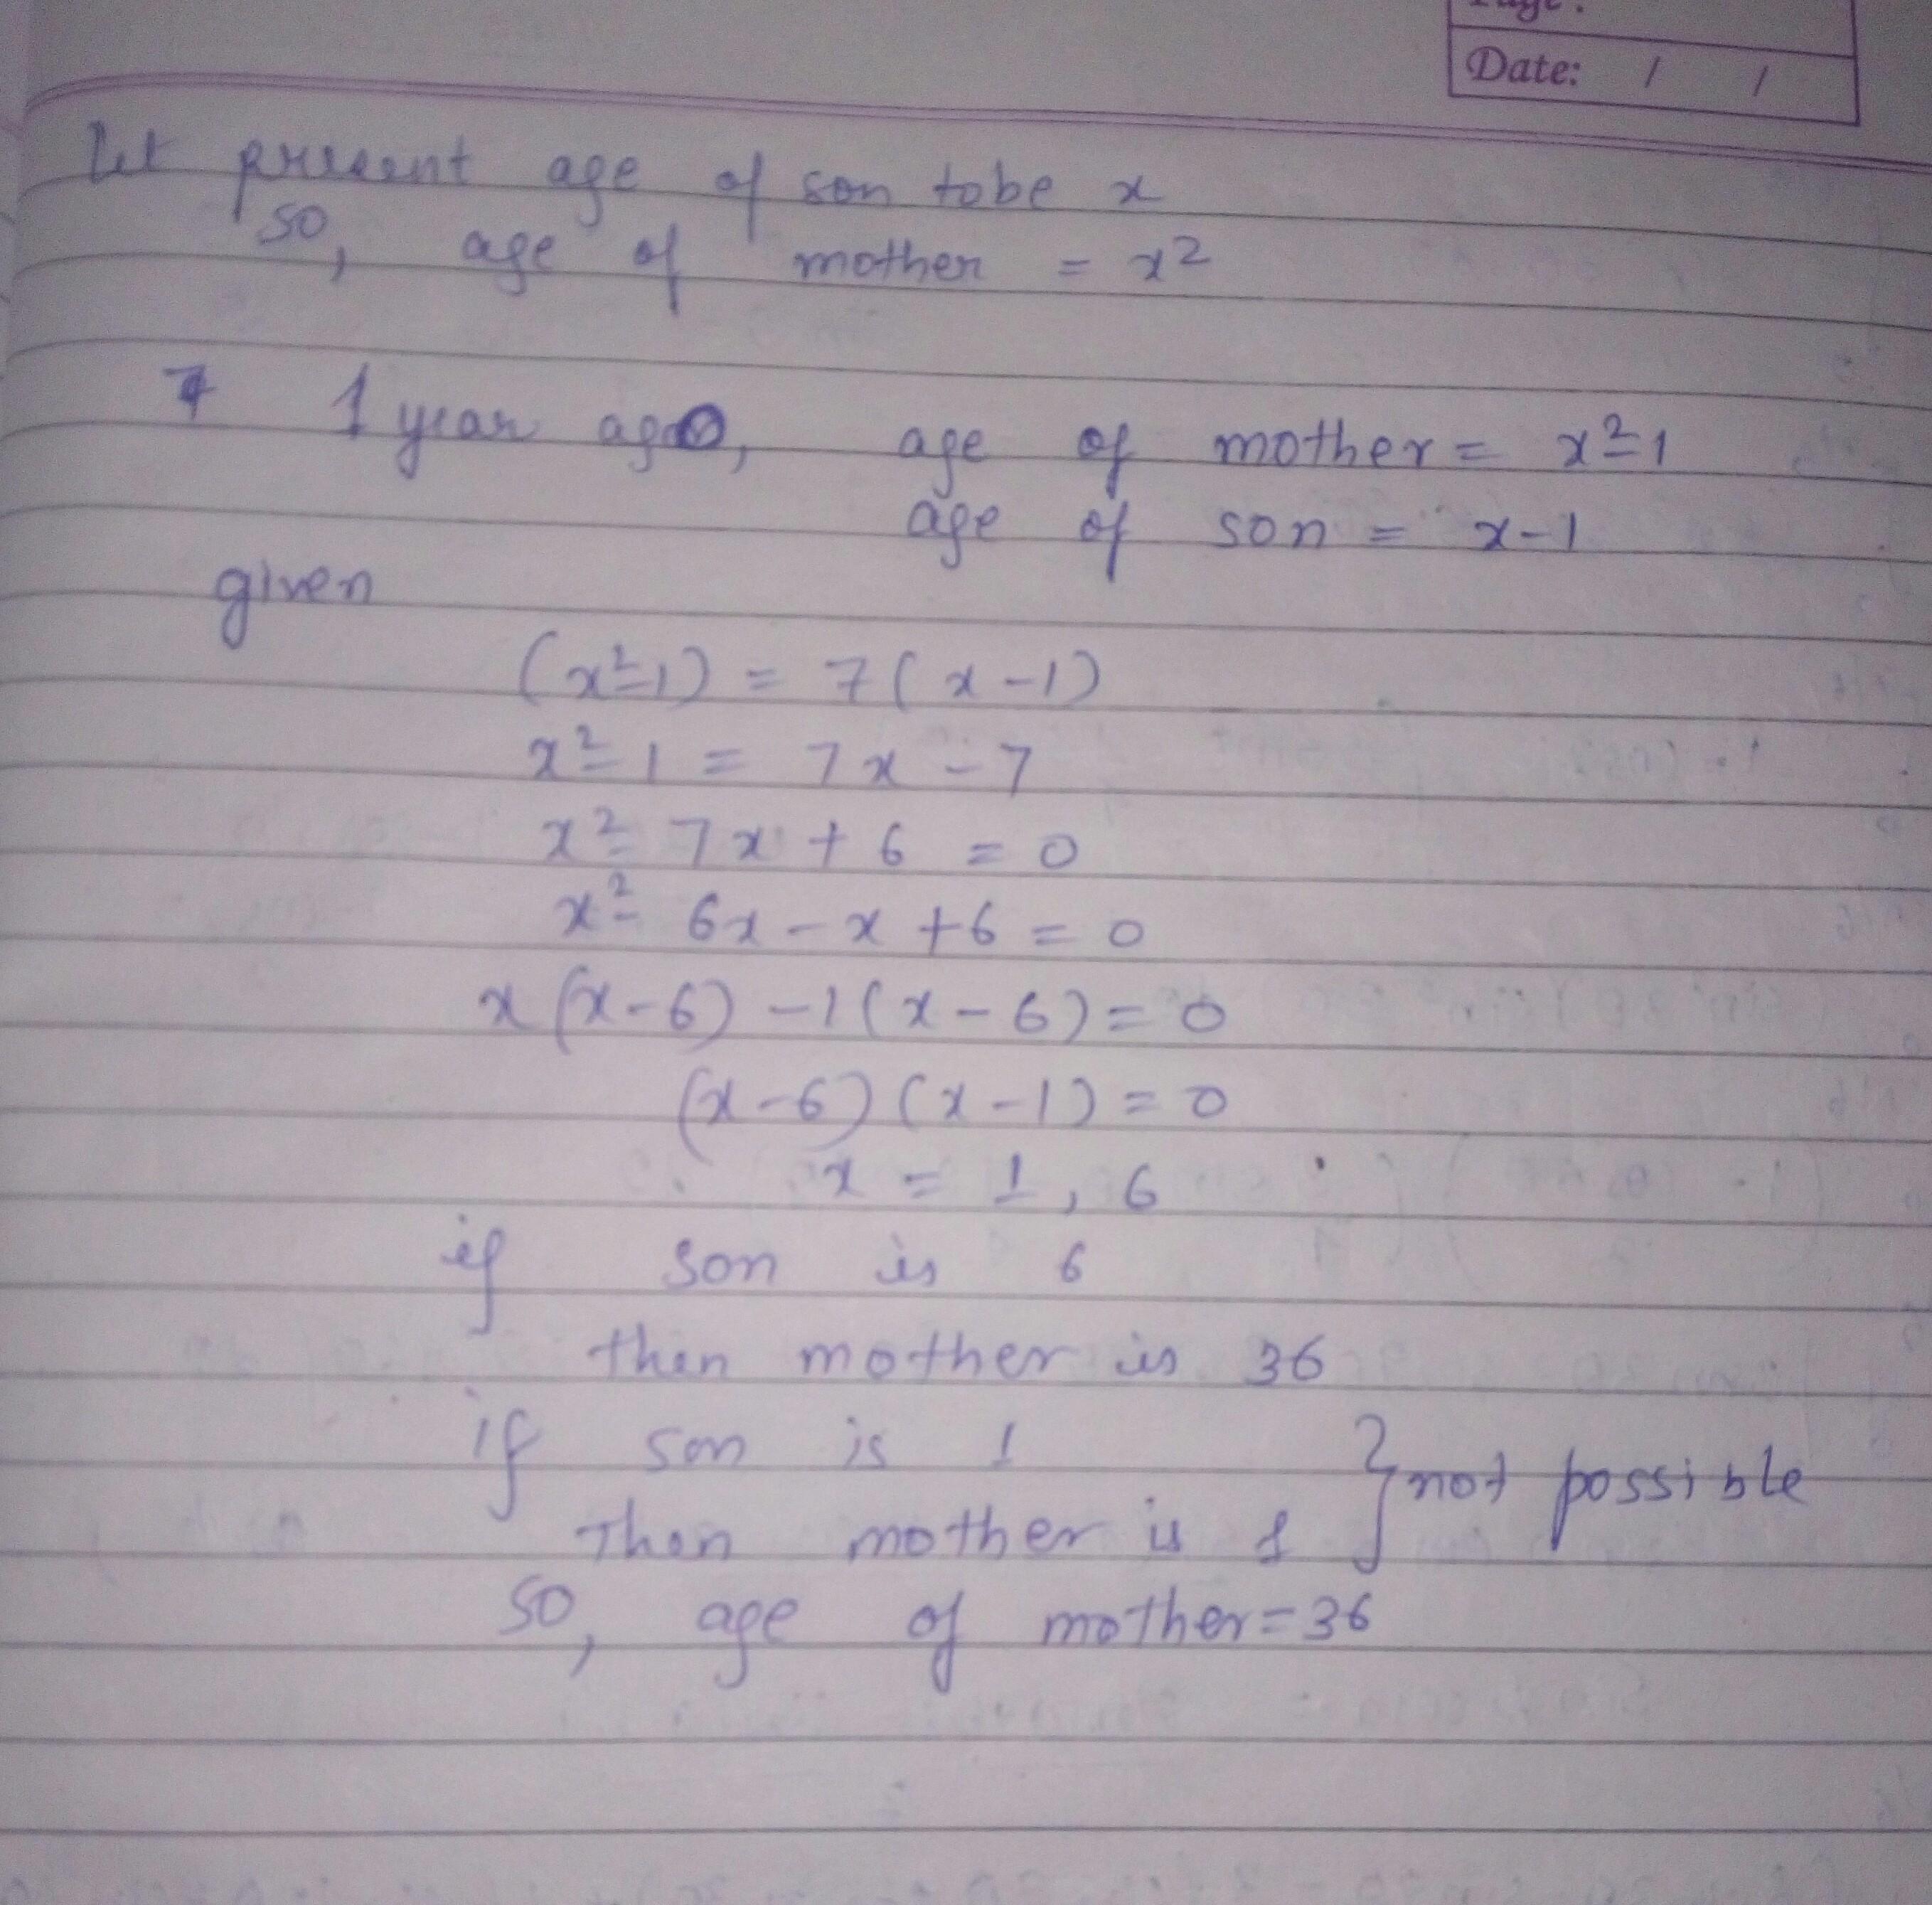 Page:
Date: / /
Let present age of son tobe x
so, age of mother = x²
1 year ago, age of mother = x²-1
age of son = x-1
given
(x²-1) = 7(x-1)
x²-1 = 7x-7
x²-7x+6 = 0
x²-6x-x+6=0
x(x-6)-1(x-6)=0
(x-6)(x-1)=0
x = 1, 6
if son is 6
then mother is 36
if son is 1
Then mother is 1 } not possible
so, age of mother=36